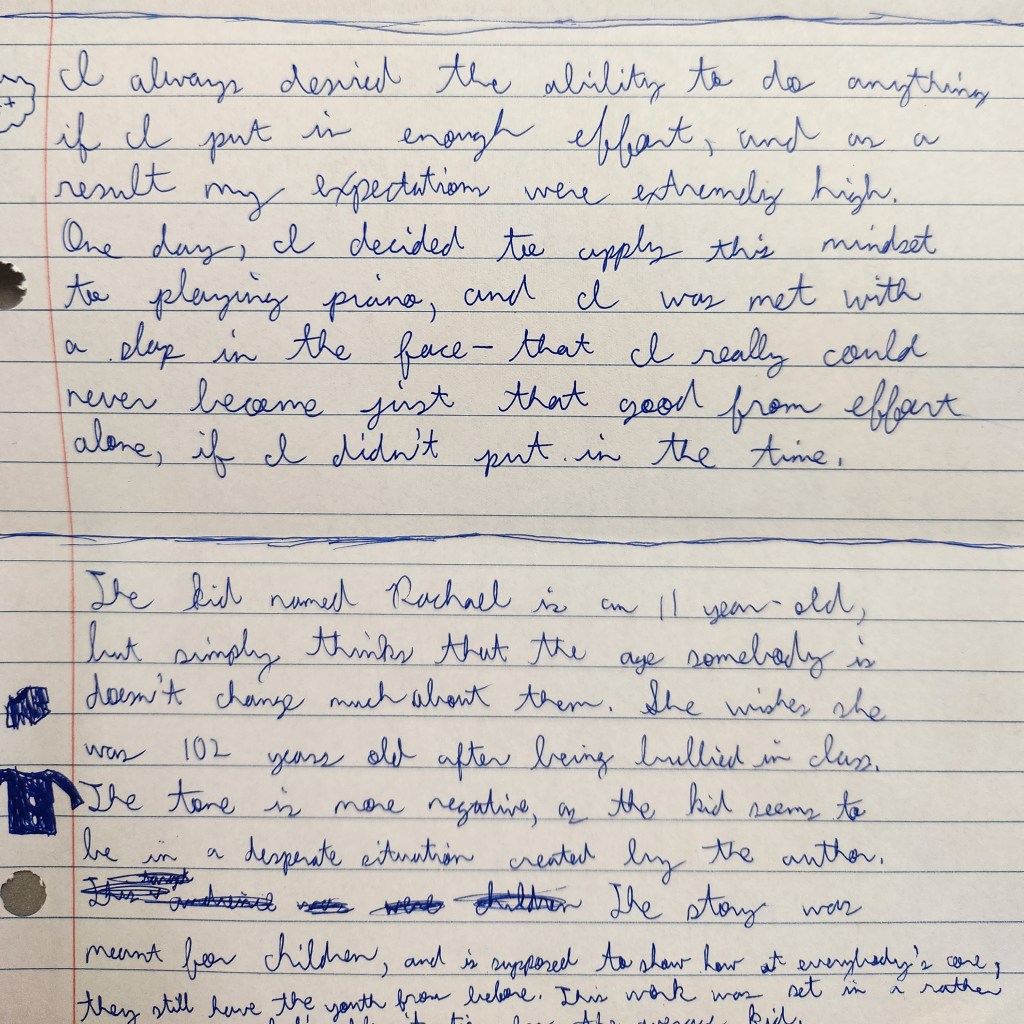 I always denied the ability to do anything
if I put in enough effort, and as a
result my expectations were extremely high.
One day, I decided to apply this mindset
to playing piano, and I was met with
a slap in the face- that I really could
never become just that good from effort
alone, if I didn't put in the time.
The kid named Rachael is an 11 year-old,
but simply thinks that the age somebody is
doesn't change much about them. She wishes she
was 102 years old after being bullied in class.
The tone is more negative, as the kid seems to
be in a desperate situation created by the author.
The story was
meant for children, and is supposed to show how at everybody's core,
they still have the youth from before. This work was set in a rather
the average kid.